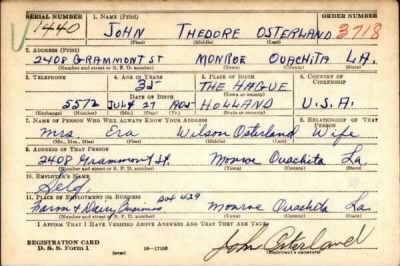 SERIAL NUMBER 1. NAME (Print) ORDER NUMBER
1440 JOHN THEDORE OSTERLAND 3718
(First) (Middle) (Last)
2. ADDRESS (Print)
2408 GRAMMONT ST MONROE OUACHITA LA.
(Number and street or R. F. D. number) (Town) (County) (State)
3. TELEPHONE 4. AGE IN YEARS 5. PLACE OF BIRTH 6. COUNTRY OF CITIZENSHIP
35 THE HAGUE
DATE OF BIRTH (Town or county)
5572 JULY 27 1905 HOLLAND U.S.A.
(Exchange) (Number) (Mo.) (Day) (Yr.) (State or country)
7. NAME OF PERSON WHO WILL ALWAYS KNOW YOUR ADDRESS 8. RELATIONSHIP OF THAT PERSON
Mrs. Era Wilson Osterland Wife
(Mr., Mrs., Miss) (First) (Middle) (Last)
9. ADDRESS OF THAT PERSON
2408 Grammont St. Monroe Ouachita La.
(Number and street or R. F. D. number) (Town) (County) (State)
10. EMPLOYER'S NAME
Self.
11. PLACE OF EMPLOYMENT OR BUSINESS
Box 429
Farm & Dairy Business Monroe Ouachita La.
(Number and street or R. F. D. number) (Town) (County) (State)
I AFFIRM THAT I HAVE VERIFIED ABOVE ANSWERS AND THAT THEY ARE TRUE.
REGISTRATION CARD
D. S. S. Form 1 (over) 16—17105 John Osterland
(Registrant's signature)